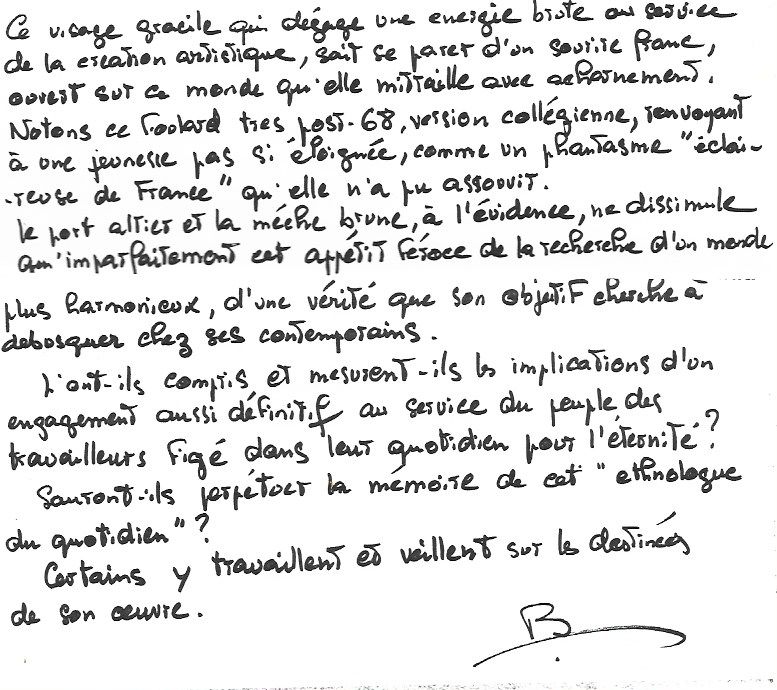 Ce visage gracile qui dégage une energie brute au service
de la creation artistique, sait se parer d'un sourire franc,
ouvert sur ce monde qu'elle mitraille avec acharnement.
Notons ce foulard tres post-68, version collégienne, renvoyant
à une jeunesse pas si éloignée, comme un phantasme "éclai-
-reuse de France" qu'elle n'a pu assouvir.
Le port altier et la mèche brune, à l'évidence, ne dissimule
qu'imparfaitement cet appétit féroce de la recherche d'un monde
plus harmonieux, d'une vérité que son objectif cherche à
debosquer chez ses contemporains.
L'ont-ils compris et mesurent-ils les implications d'un
engagement aussi définitif au service du peuple des
travailleurs figé dans leur quotidien pour l'éternité ?
Sauront-ils perpétuer la mémoire de cet "ethnologue
du quotidien" ?
Certains y travaillent et veillent sur les destinées
de son œuvre.
B.